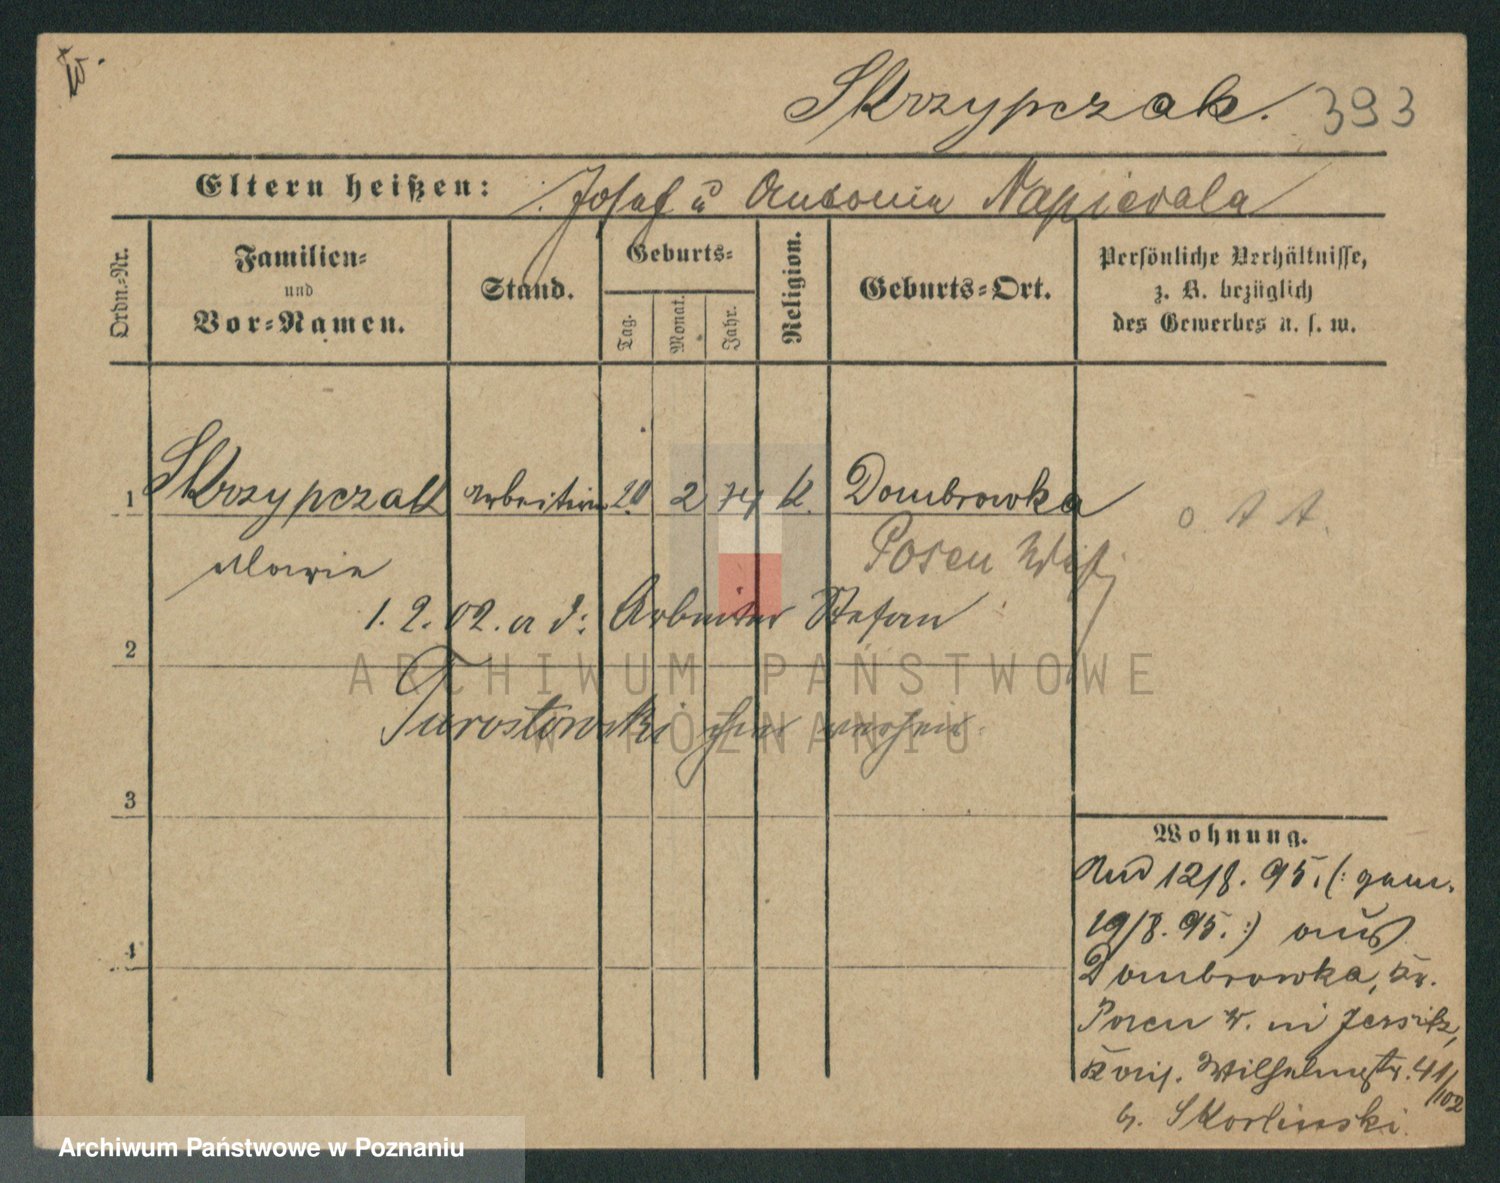 Skrzypczak. 393
Eltern heißen: Josef u Antonie Napierala
Ordn.-Nr.
Familien-
und
Vor-Namen.
Stand.
Geburts-
Tag.
Monat.
Jahr.
Religion.
Geburts-Ort.
Persönliche Verhältnisse,
z. B. bezüglich
des Gewerbes u. s. w.
1 Skrzypczak Arbeiterin 20 2 74 K. Dombrowka
Marie Posen West
1. 2. 02. a d: Arbeiter Stefan
2
Turostowski
3
Wohnung.
12/8. 95. (: gem.
19/8. 95. :) aus
4
Dombrowka, Kr.
Posen W. in Jersitz,
Wilhelmstr. 41/102
b. Skorlinski.
ARCHIWUM PAŃSTWOWE
W POZNANIU
Archiwum Państwowe w Poznaniu